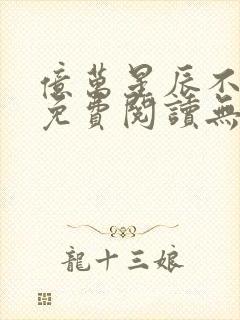 億萬星辰不
免費閱讀無
龍十三娘